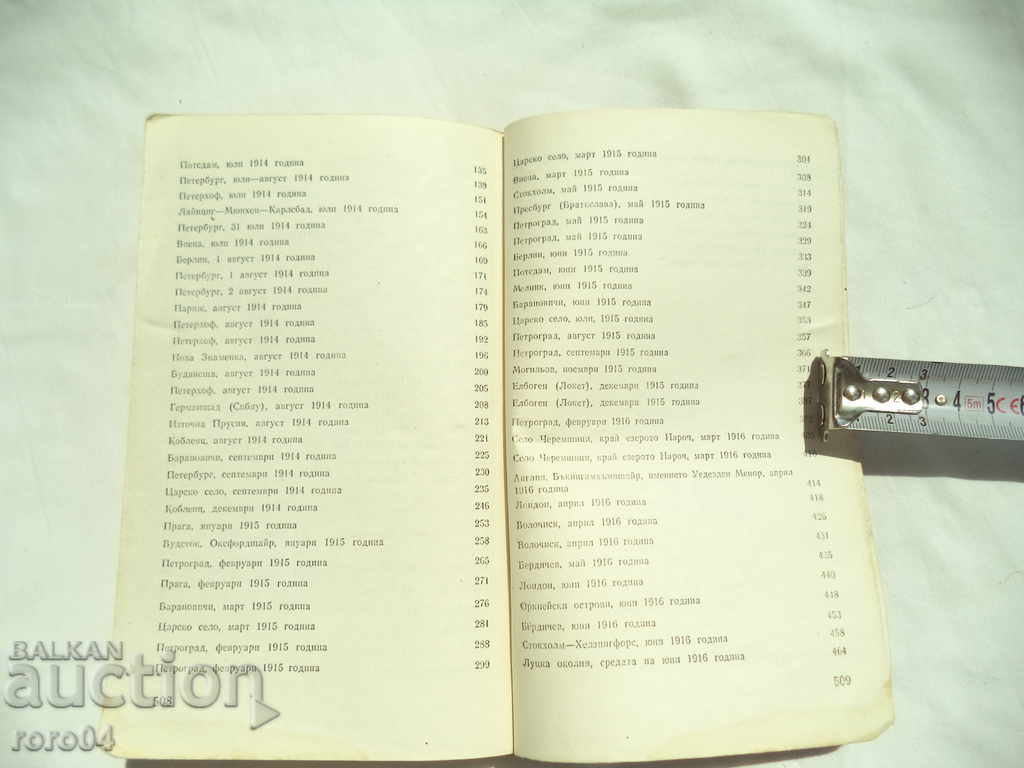 Потсдам, юли 1914 година 135
Петербург, юли—август 1914 година 139
Петерхоф, юли 1914 година 151
Лайпциг—Мюнхен—Карлсбад, юли 1914 година 154
Петербург, 31 юли 1914 година 163
Виена, юли 1914 година 166
Берлин, 1 август 1914 година 169
Петербург, 1 август 1914 година 171
Петербург, 2 август 1914 година 174
Париж, август 1914 година 179
Петерхоф, август 1914 година 185
Петерхоф, август 1914 година 192
Нова Знаменка, август 1914 година 196
Будапеща, август 1914 година 200
Петерхоф, август 1914 година 205
Германщад (Сибиу), август 1914 година 208
Източна Прусия, август 1914 година 213
Кобленц, август 1914 година 221
Барановичи, септември 1914 година 225
Петербург, септември 1914 година 230
Царско село, септември 1914 година 235
Кобленц, декември 1914 година 246
Прага, януари 1915 година 253
Вудсток, Оксфордшайр, януари 1915 година 258
Петроград, февруари 1915 година 265
Прага, февруари 1915 година 271
Барановичи, март 1915 година 276
Царско село, март 1915 година 281
Петроград, февруари 1915 година 288
Петроград, февруари 1915 година 299
508
Царско село, март 1915 година 304
Виена, март 1915 година 308
Стокхолм, май 1915 година 314
Пресбург (Братислава), май 1915 година 319
Петроград, май 1915 година 324
Петроград, май 1915 година 329
Берлин, юни 1915 година 333
Потсдам, юни 1915 година 339
Мелник, юни 1915 година 342
Барановичи, юни 1915 година 347
Царско село, юли 1915 година 353
Петроград, август 1915 година 357
Петроград, септември 1915 година 366
Могильов, ноември 1915 година
Елбоген (Локет), декември 1915 година
Елбоген (Локет), декември 1915 година
Петроград, февруари 1916 година
Село Черемшици, край езерото Нароч, март 1916 година
Село Черемшици, край езерото Нароч, март 1916 година 410
Бъкингамхъмшайр, имението Уедезден Менор, април
1916 година 414
Лондон, април 1916 година 418
Волочиск, април 1916 година 426
Волочиск, април 1916 година 431
Бердичев, май 1916 година 435
Лондон, юни 1916 година 440
Оркнейски острови, юни 1916 година 448
Бердичев, юни 1916 година 453
Стокхолм—Хелзингфорс, юни 1916 година 458
Луцка околия, средата на юни 1916 година 464
509
1 2 3
2 3 4 5m 5 CE 6
1 2 3
BALKAN
auction
roro04